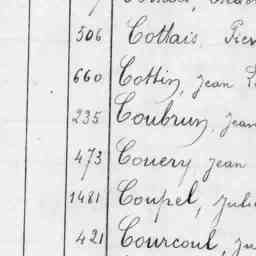 506 Collais, Pier
660 Collin, Jean
235 Coubrun, Jean
473 Couery Jean
1481 Coupel, Juli
421 Courcoul, Ju